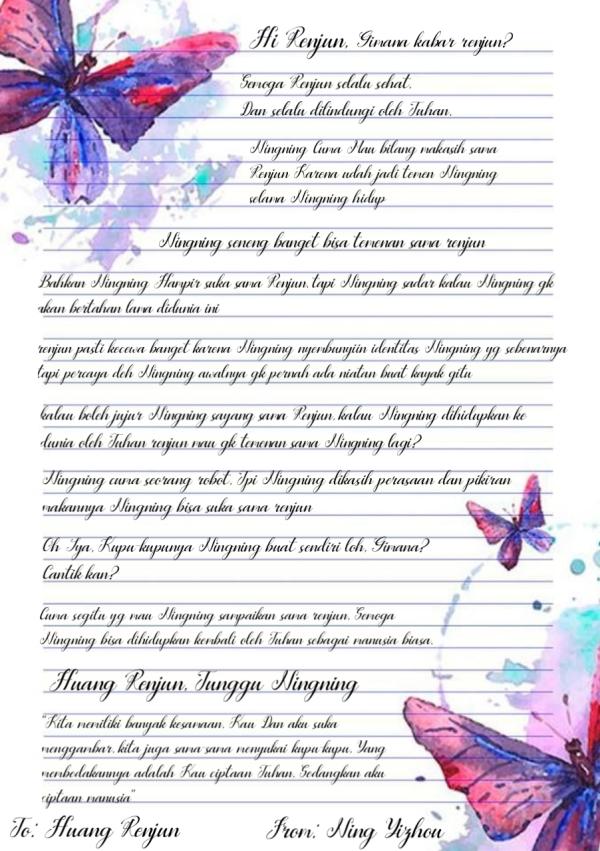 Hi Renjun, Gimana kabar renjun?
Semoga Renjun selalu sehat.
Dan selalu dilindungi oleh Tuhan.
Ningning Cuma Mau bilang makasih sama
Renjun Karena udah jadi temen Ningning
selama Ningning hidup
Ningning seneng banget bisa temenan sama renjun
Bahkan Ningning Hampir suka sama Renjun, tapi Ningning sadar kalau Ningning gk
akan bertahan lama didunia ini
renjun pasti kecewa banget karena Ningning nyembunyiin identitas Ningning yg sebenarnya
tapi percaya deh Ningning awalnya gk pernah ada niatan buat kayak gitu
kalau boleh jujur Ningning sayang sama Renjun, kalau Ningning dihidupkan ke
dunia oleh Tuhan renjun mau gk temenan sama Ningning lagi?
Ningning cuma seorang robot, Tpi Ningning dikasih perasaan dan pikiran
makannya Ningning bisa suka sama renjun
Oh Iya, Kupu kupunya Ningning buat sendiri loh, Gimana?
Cantik kan?
Cuma segitu yg mau Ningning sampaikan sama renjun, Semoga
Ningning bisa dihidupkan kembali oleh Tuhan sebagai manusia biasa.
Huang Renjun, Tunggu Ningning
"Kita memiliki banyak kesamaan, Kau Dan aku suka
menggambar, kita juga sama sama menyukai kupu kupu, Yang
membedakannya adalah Kau ciptaan Tuhan, Sedangkan aku
ciptaan manusia"
To: Huang Renjun
From: Ning Yizhou